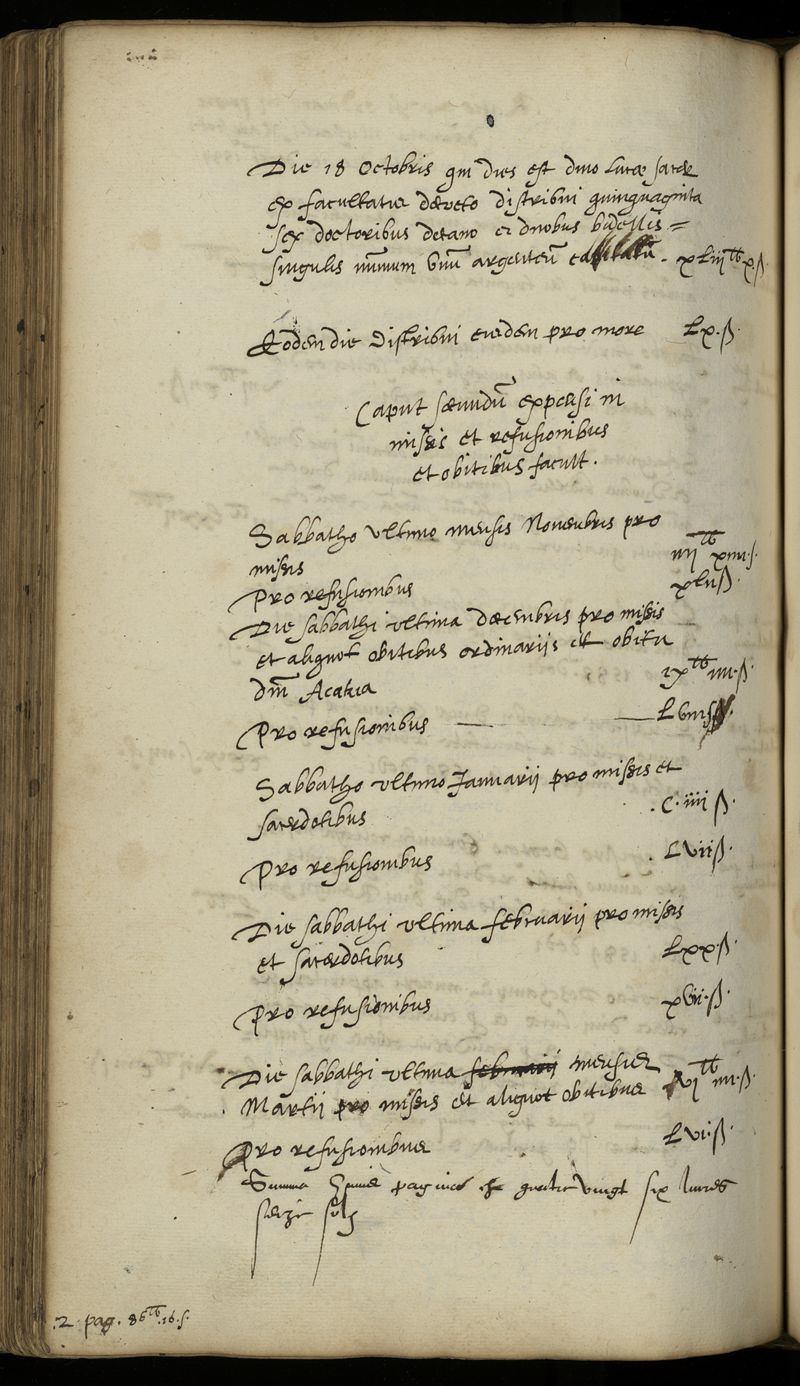 Die 18 Octobris qm dies est divo Lucæ sacer
ex facultatis decreto distribui quinquaginta
sex doctoribus decano et duobus bidellis =
singulis nūmum unū argenteū xLiij tt x ß.
Eodem die distribui eiusdem pro more Lx. ß.
Caput secundū expensi in
missis et refusionibus
et obitibus facult.
Sabbatho ultimo mensis Novembris pro
missis iiij tt xiiii. s.
Pro refusionibus xLii ß.
Die sabbathi ultima decembris pro missis
et aliquot obitibus ordinariis et obitu
dni Acakia ix tt iiii. ß.
Pro refusionibus Lviii ß.
Sabbatho ultimo Januarij pro missis et
sacerdotibus . C. iiii ß.
Pro refusionibus . Lvii ß.
Die sabbathi ultima februarij pro missis
et sacerdotibus Lxx. ß.
Pro refusionibus xvii. ß.
Die sabbathi ultima februarij mensis
Martij pro missis et aliquot obitibus vj tt iiii. ß.
Pro refusionibus Lvii. ß.
Summa paginæ quatre vingt six livres
seize solz
.2. pag. 86 tt .16. s.